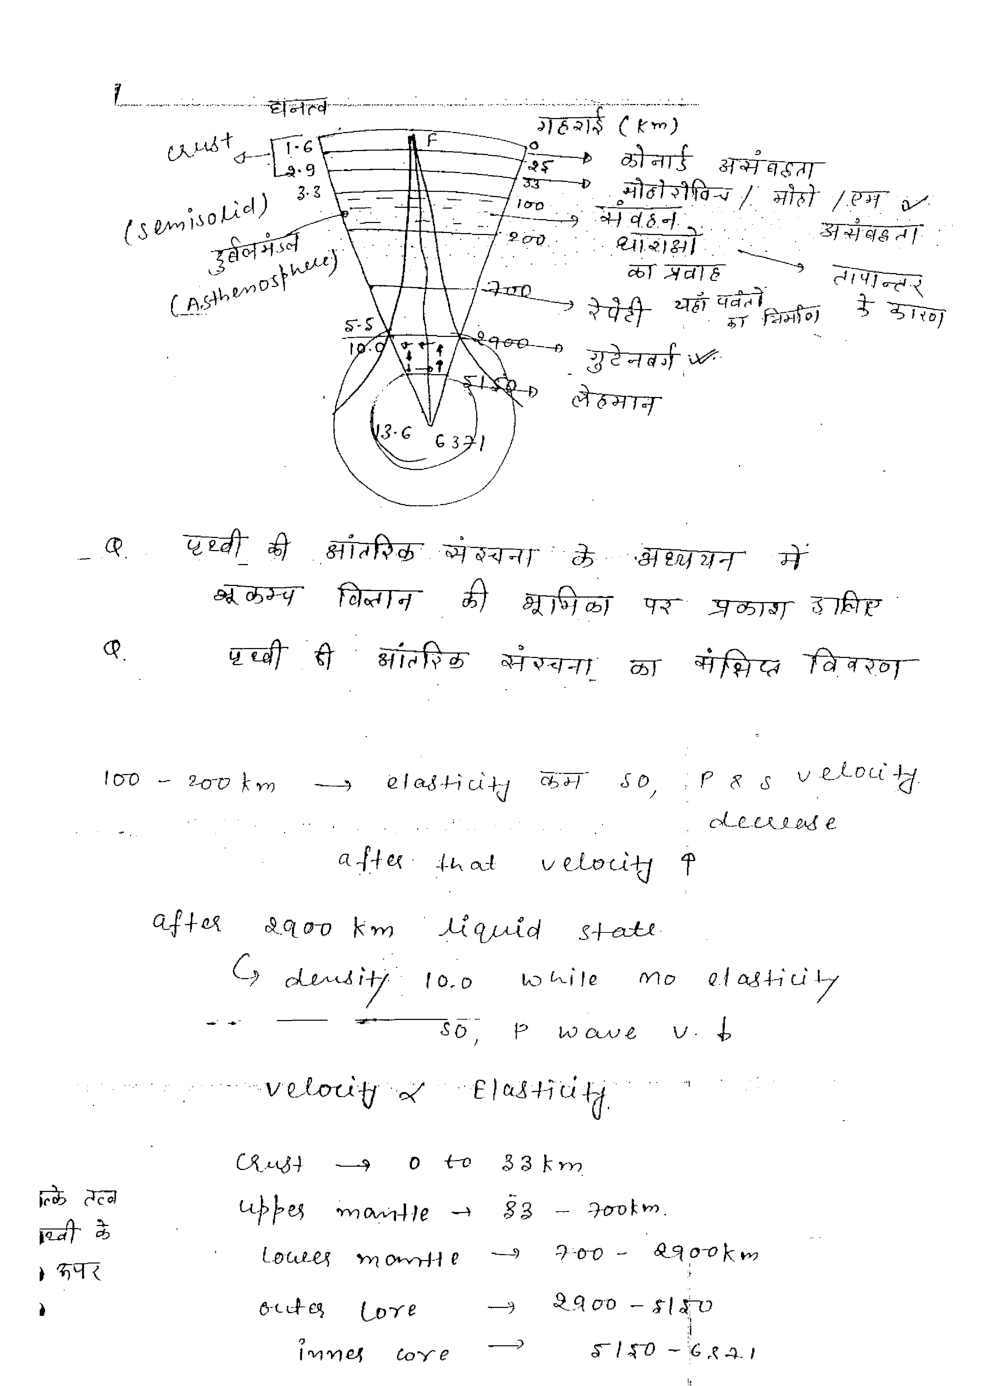 घनत्व
गहराई (Km)
crust
1.6
F
0
2.9
25 → कोनार्ड असंबद्धता
3.3
33 → मोहोरोविच / मोहो / एम
असंबद्धता
(semisolid)
100 → संवहन
धाराओ
का प्रवाह
तापान्तर
के कारण
दुर्बलमंडल
(Asthenosphere)
200
700 → रेपेटी यहाँ पर्वतों
का निर्माण
5.5
10.0
2900 → गुटेनबर्ग
5150 → लेहमान
13.6
6371
Q. पृथ्वी की आंतरिक संरचना के अध्ययन में
भूकम्प विज्ञान की भूमिका पर प्रकाश डालिए
Q. पृथ्वी की आंतरिक संरचना का संक्षिप्त विवरण
100 - 200 km → elasticity कम so, P & S velocity
decrease
after that velocity ↑
after 2900 km liquid state
↳ density 10.0 while no elasticity
so, P wave v. ↓
velocity ∝ Elasticity
crust → 0 to 33 km
upper mantle → 33 - 700 km.
lower mantle → 700 - 2900 km
outer core → 2900 - 5150
inner core → 5150 - 6371
तत्व
के
ऊपर